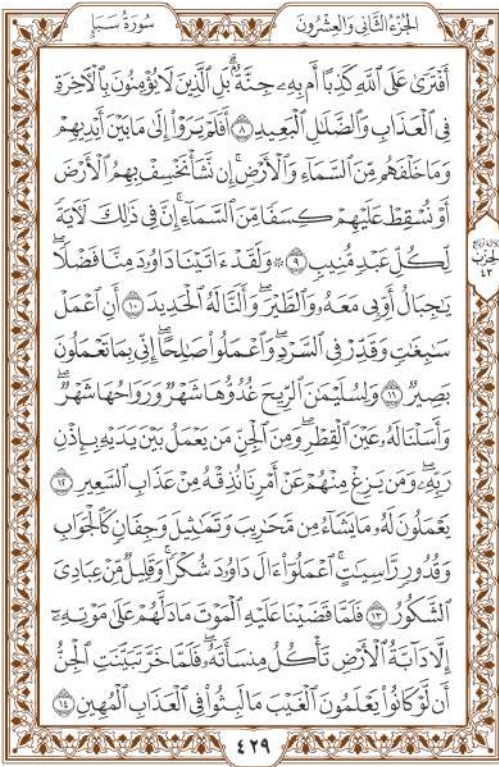 سُورَةُ سَبَإٍ
الجُزْءُ الثَّانِي وَالعِشْرُونَ
أَفْتَرَىٰ عَلَى ٱللَّهِ كَذِبًا أَم بِهِۦ جِنَّةٌۢۗ بَلِ ٱلَّذِينَ لَا يُؤْمِنُونَ بِٱلْأٓخِرَةِ
فِى ٱلْعَذَابِ وَٱلضَّلَٰلِ ٱلْبَعِيدِ ٨ أَفَلَمْ يَرَوْا۟ إِلَىٰ مَا بَيْنَ أَيْدِيهِمْ
وَمَا خَلْفَهُم مِّنَ ٱلسَّمَآءِ وَٱلْأَرْضِۚ إِن نَّشَأْ نَخْسِفْ بِهِمُ ٱلْأَرْضَ
أَوْ نُسْقِطْ عَلَيْهِمْ كِسَفًا مِّنَ ٱلسَّمَآءِۚ إِنَّ فِى ذَٰلِكَ لَأٓيَةً
لِّكُلِّ عَبْدٍ مُّنِيبٍ ٩ ۞ وَلَقَدْ ءَاتَيْنَا دَاوُۥدَ مِنَّا فَضْلًاۖ
يَٰجِبَالُ أَوِّبِى مَعَهُۥ وَٱلطَّيْرَۖ وَأَلَنَّا لَهُ ٱلْحَدِيدَ ١٠ أَنِ ٱعْمَلْ
سَٰبِغَٰتٍ وَقَدِّرْ فِى ٱلسَّرْدِۖ وَٱعْمَلُوا۟ صَٰلِحًاۖ إِنِّى بِمَا تَعْمَلُونَ
بَصِيرٌ ١١ وَلِسُلَيْمَٰنَ ٱلرِّيحَ غُدُوُّهَا شَهْرٌ وَرَوَاحُهَا شَهْرٌۖ
وَأَسَلْنَا لَهُۥ عَيْنَ ٱلْقِطْرِۖ وَمِنَ ٱلْجِنِّ مَن يَعْمَلُ بَيْنَ يَدَيْهِ بِإِذْنِ
رَبِّهِۦۖ وَمَن يَزِغْ مِنْهُمْ عَنْ أَمْرِنَا نُذِقْهُ مِنْ عَذَابِ ٱلسَّعِيرِ ١٢
يَعْمَلُونَ لَهُۥ مَا يَشَآءُ مِن مَّحَٰرِيبَ وَتَمَٰثِيلَ وَجِفَانٍ كَٱلْجَوَابِ
وَقُدُورٍ رَّاسِيَٰتٍۚ ٱعْمَلُوٓا۟ ءَالَ دَاوُۥدَ شُكْرًاۚ وَقَلِيلٌ مِّنْ عِبَادِىَ
ٱلشَّكُورُ ١٣ فَلَمَّا قَضَيْنَا عَلَيْهِ ٱلْمَوْتَ مَا دَلَّهُمْ عَلَىٰ مَوْتِهِۦٓ
إِلَّا دَآبَّةُ ٱلْأَرْضِ تَأْكُلُ مِنسَأَتَهُۥۖ فَلَمَّا خَرَّ تَبَيَّنَتِ ٱلْجِنُّ
أَن لَّوْ كَانُوا۟ يَعْلَمُونَ ٱلْغَيْبَ مَا لَبِثُوا۟ فِى ٱلْعَذَابِ ٱلْمُهِينِ ١٤
الحِزْبُ
٤٣
٤٢٩